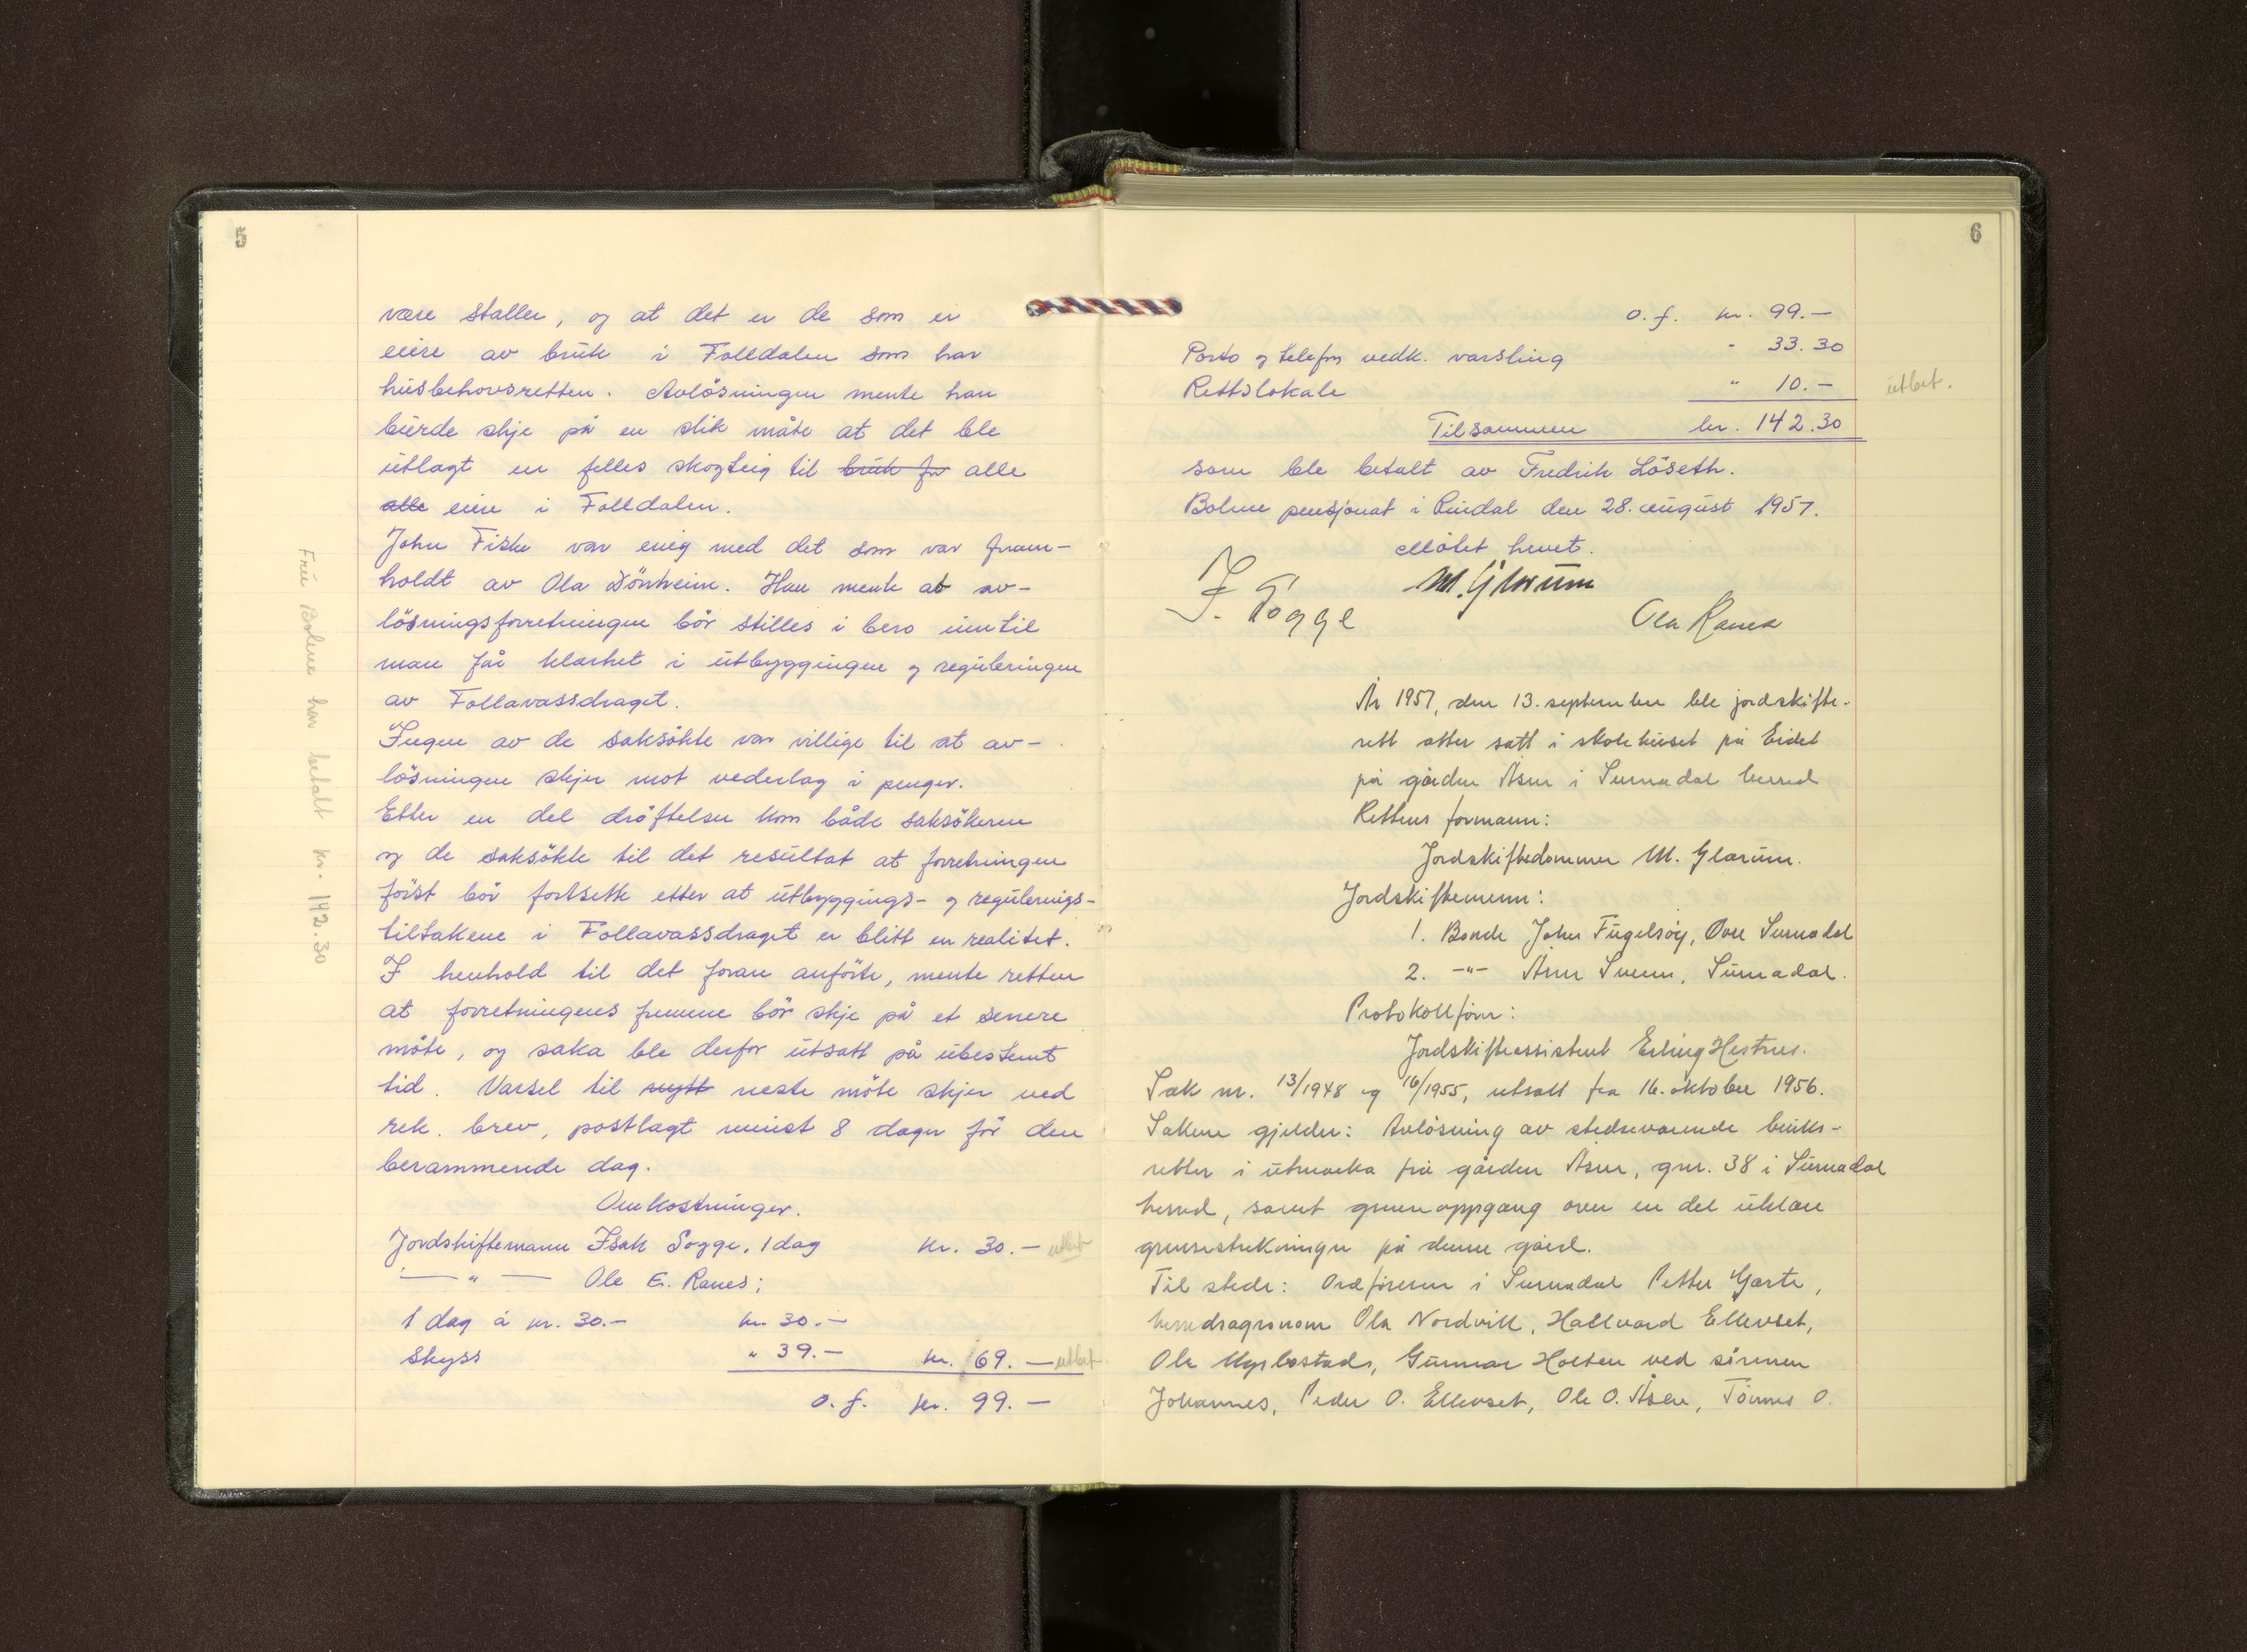 5
være staller, og at det er de som er
eiere av bruk i Folldalen som har
husbehovsretten. Avlösningen mente han
burde skje på en slik måte at det ble
utlagt en felles skogteig til bruk for alle
alle eiere i Folldalen.
John Fiske var enig med det som var fram-
holdt av Ola Dönheim. Han mente at av-
lösningsforretningen bör stilles i bero inntil
man får klarhet i utbyggingen og reguleringen
av Follavassdraget.
Ingen av de saksökte var villige til at av-
lösningen skjer mot vederlag i penger.
Etter en del dröftelser kom både saksökeren
og de saksökte til det resultat at forretningen
först bör fortsette etter at utbyggings- og regulerings-
tiltakene i Follavassdraget er blitt en realitet.
I henhold til det foran anförte, mente retten
at forretningens fremme bör skje på et senere
möte, og saka ble derfor utsatt på ubestemt
tid. Varsel til nytt neste möte skjer ved
rek. brev, postlagt minst 8 dager för den
berammende dag.
Omkostninger.
Jordskiftemann Isak Sogge, 1 dag kr. 30.- utbet
— " — Ole E. Ranes;
1 dag á kr. 30.- kr. 30.-
Skyss " 39.- kr. 69.- utbet
o. f. kr. 99.-
Fru Bolme har betalt kr. 142.30
6
o. f. kr. 99.-
Porto og telefon vedk. varsling " 33.30
Rettslokale " 10.- utbet.
Tilsammen kr. 142.30
som ble betalt av Fredrik Löseth.
Bolme pensjonat i Rindal den 28. august 1957.
Mötet hevet.
I. Sogge M. Glærum
Ola Ranes
År 1957, den 13. september ble jordskifte-
rett atter satt i skolehuset på Eidet
på gården Åsen i Surnadal herred
Rettens formann:
Jordskiftedommer M. Glærum.
Jordskiftemenn:
1. Bonde John Fugelsöy, Övre Surnadal
2. -"- Arne Svenn, Surnadal.
Protokollförer:
Jordskifteassistent Erling Hestnes.
Sak nr. 13/1948 og 16/1955, utsatt fra 16. oktober 1956.
Sakene gjelder: Avlösning av stedsevarende bruks-
retter i utmarka på gården Åsen, gnr. 38 i Surnadal
herred, samt grenseoppgang over en del uklare
grensestrekninger på denne gård.
Til stede: Ordföreren i Surnadal Petter Garte,
herredsagronom Ola Nordvik, Hallvard Ellevset,
Ole Myrbostad, Gunnar Holten ved sönnen
Johannes, Peder O. Ellevset, Ole O. Åsen, Tönnes O.